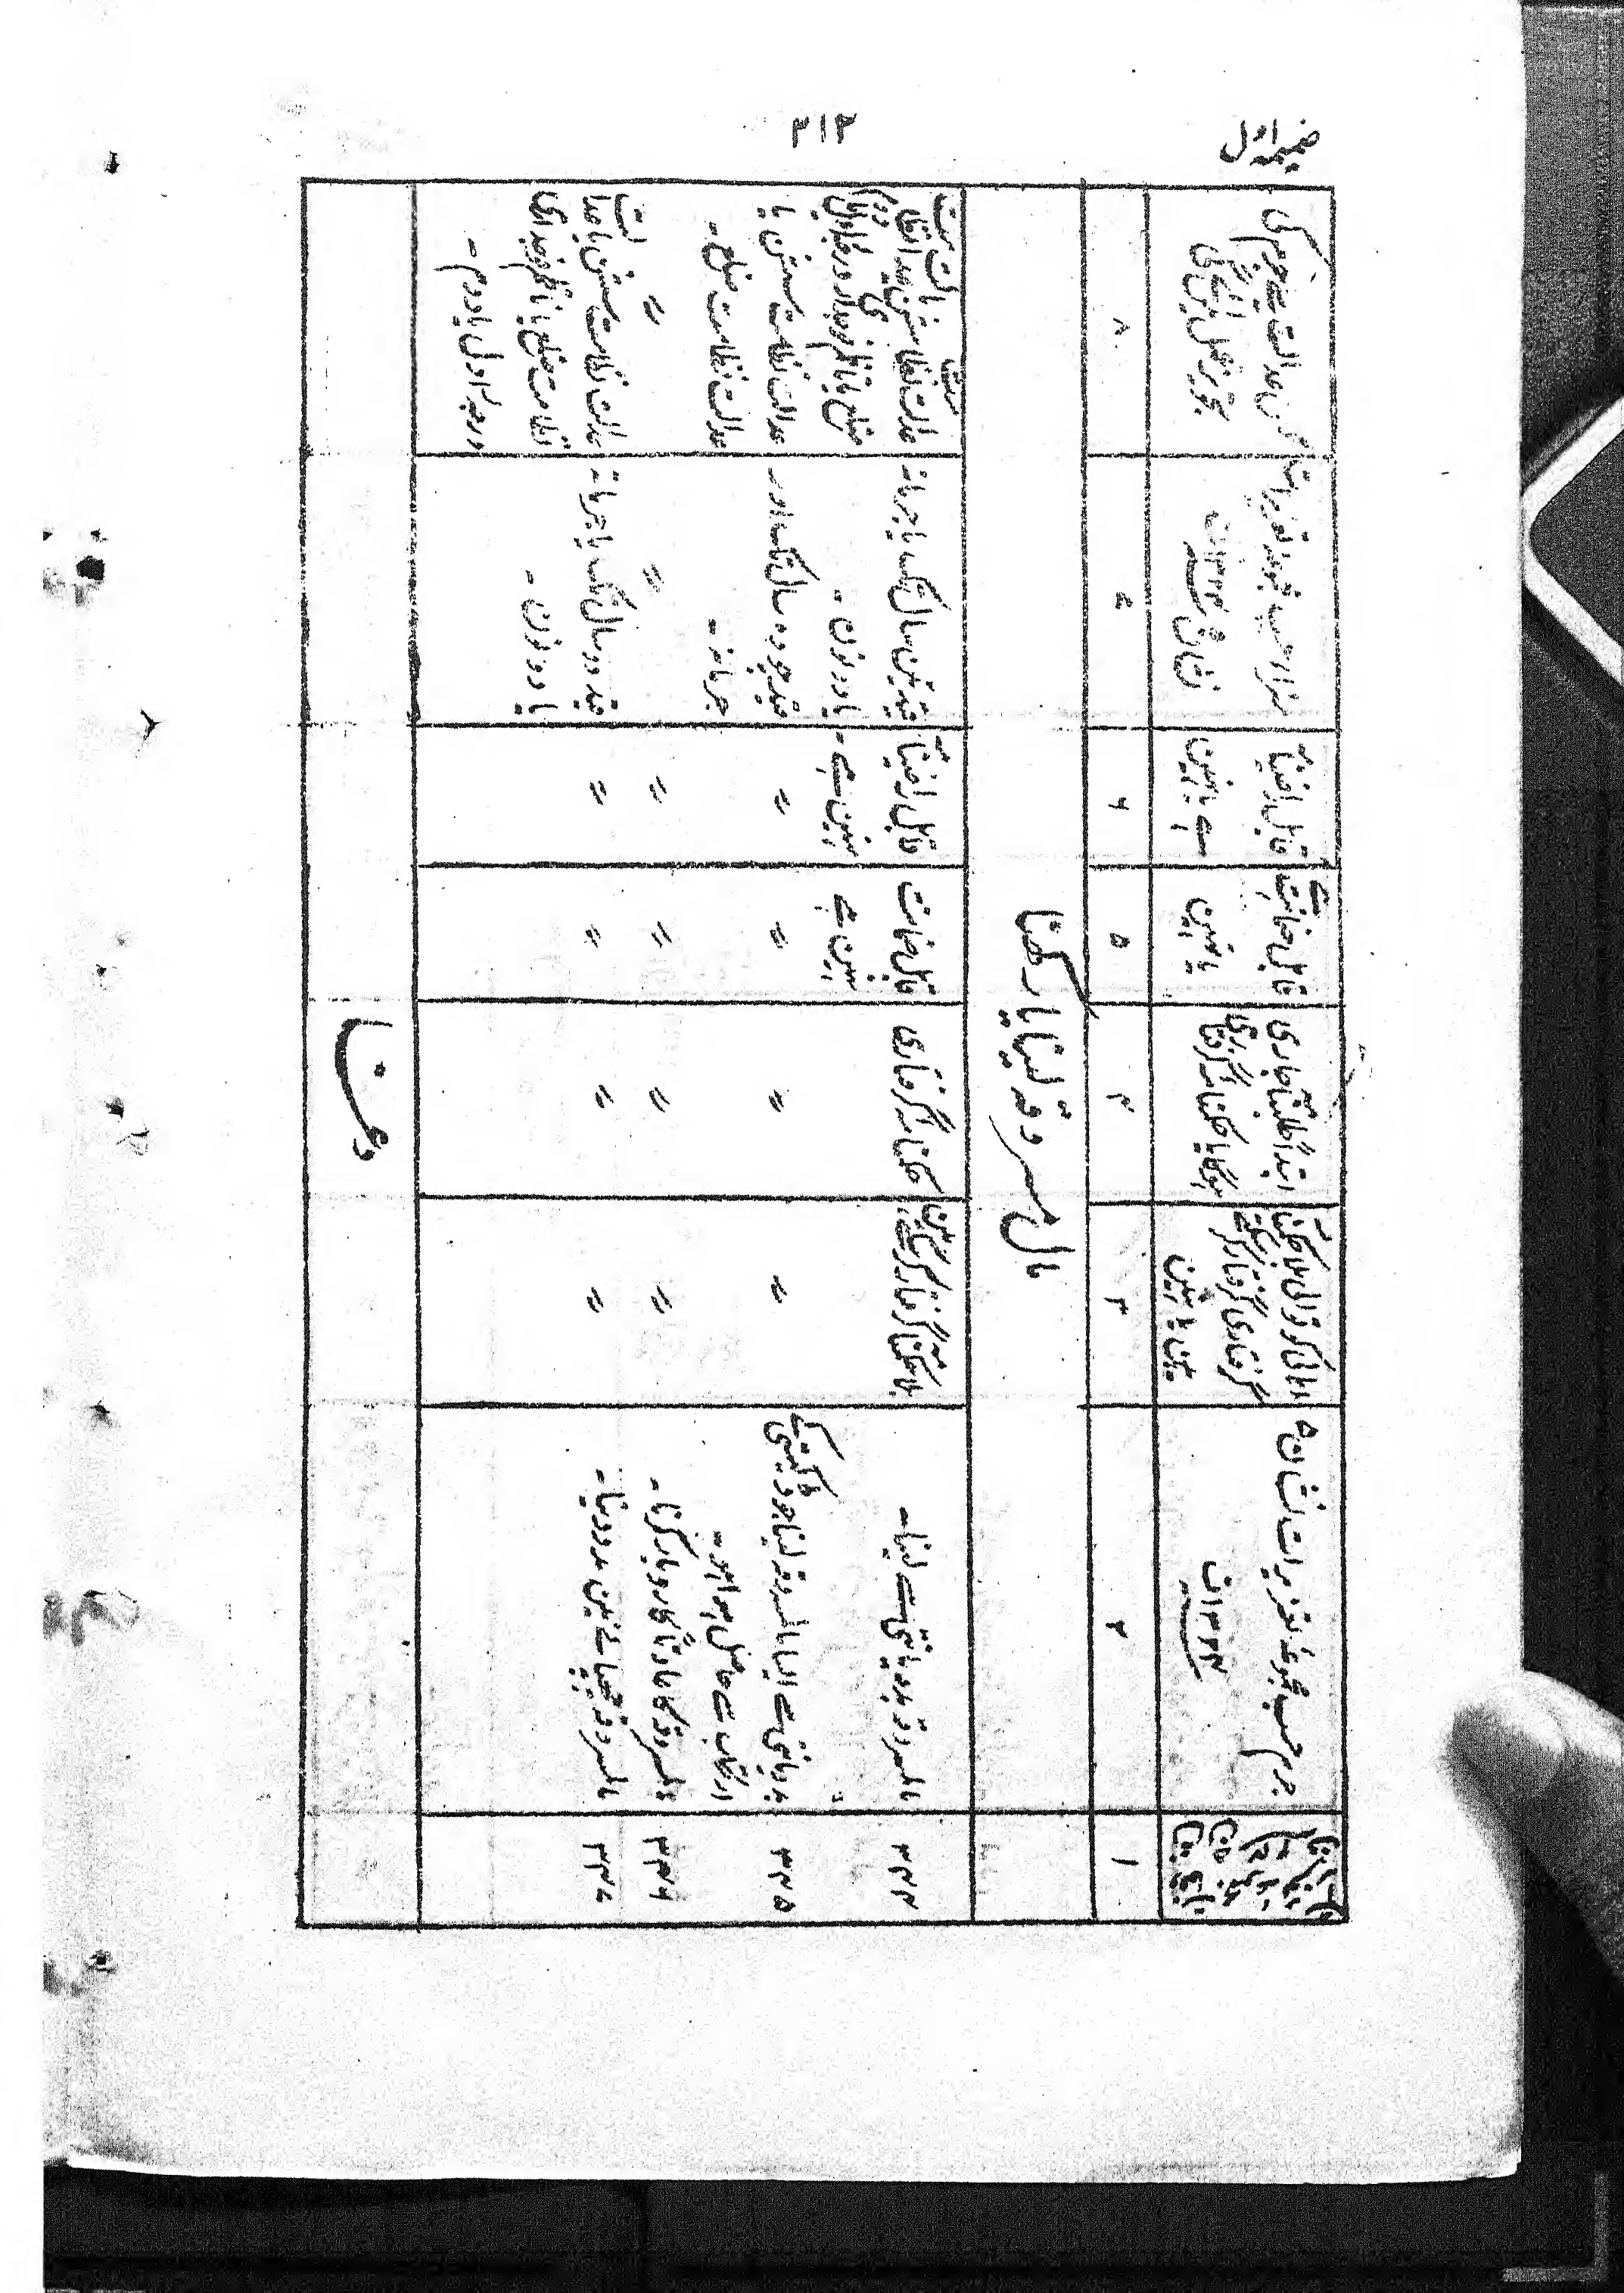 ضمیمہ اول
۳۱۳
جرم حسب مجموعہ تعزیرات نشان ۵
۱۳۲۴ف
اہالی کوتوالی بلا حکمنامہ
گرفتاری گرفتار کرسکتے
ہین یا نہین
ابتداً طلبنامہ جاری
ہوگا یا حکمنامہ گرفتاری
قابل ضمانت ہے
یا نہین
قابل راضینامہ
ہے یا نہین
سزا حسب مجموعہ تعزیرات
نشان ۵ ۱۳۲۴ف
کس عدالت سے جرم کی
تجویز عمل مین آئیگی
۱
۲
۳
۴
۵
۶
۷
۸
مال مسروقہ لینا یا رکھنا
۳۴۴
مال مسروقہ بددیانتی سے لینا۔
بلا حکمنامہ گرفتار کرسکتے ہین
حکمنامہ گرفتاری
قابل ضمانت
نہین ہے
قابل راضینامہ
نہین ہے۔
قید تین سال تک یا جرمانہ
یا دونون۔
عدالت نظامت سشن یا عدالت نظامت
ضلع یا ناظم فوجداری درجہ اول یا دوم
۳۴۵
بددیانتی سے ایسا مال مسروقہ لینا جو ڈکیتی کے
ارتکاب سے حاصل ہوا ہو۔
〃
〃
〃
〃
قید چودہ سال تک اور
جرمانہ۔
عدالت نظامت سشن یا
عدالت نظامت ضلع۔
۳۴۶
مال مسروقہ کا عادتاً کاروبار کرنا۔
〃
〃
〃
〃
〃
〃
۳۴۷
مال مسروقہ چھپانے مین مدد دینا۔
〃
〃
〃
〃
قید دو سال تک یا جرمانہ
یا دونون۔
عدالت نظامت سشن یا عدالت
نظامت ضلع یا ناظم فوجداری
درجہ اول یا دوم۔
دغا